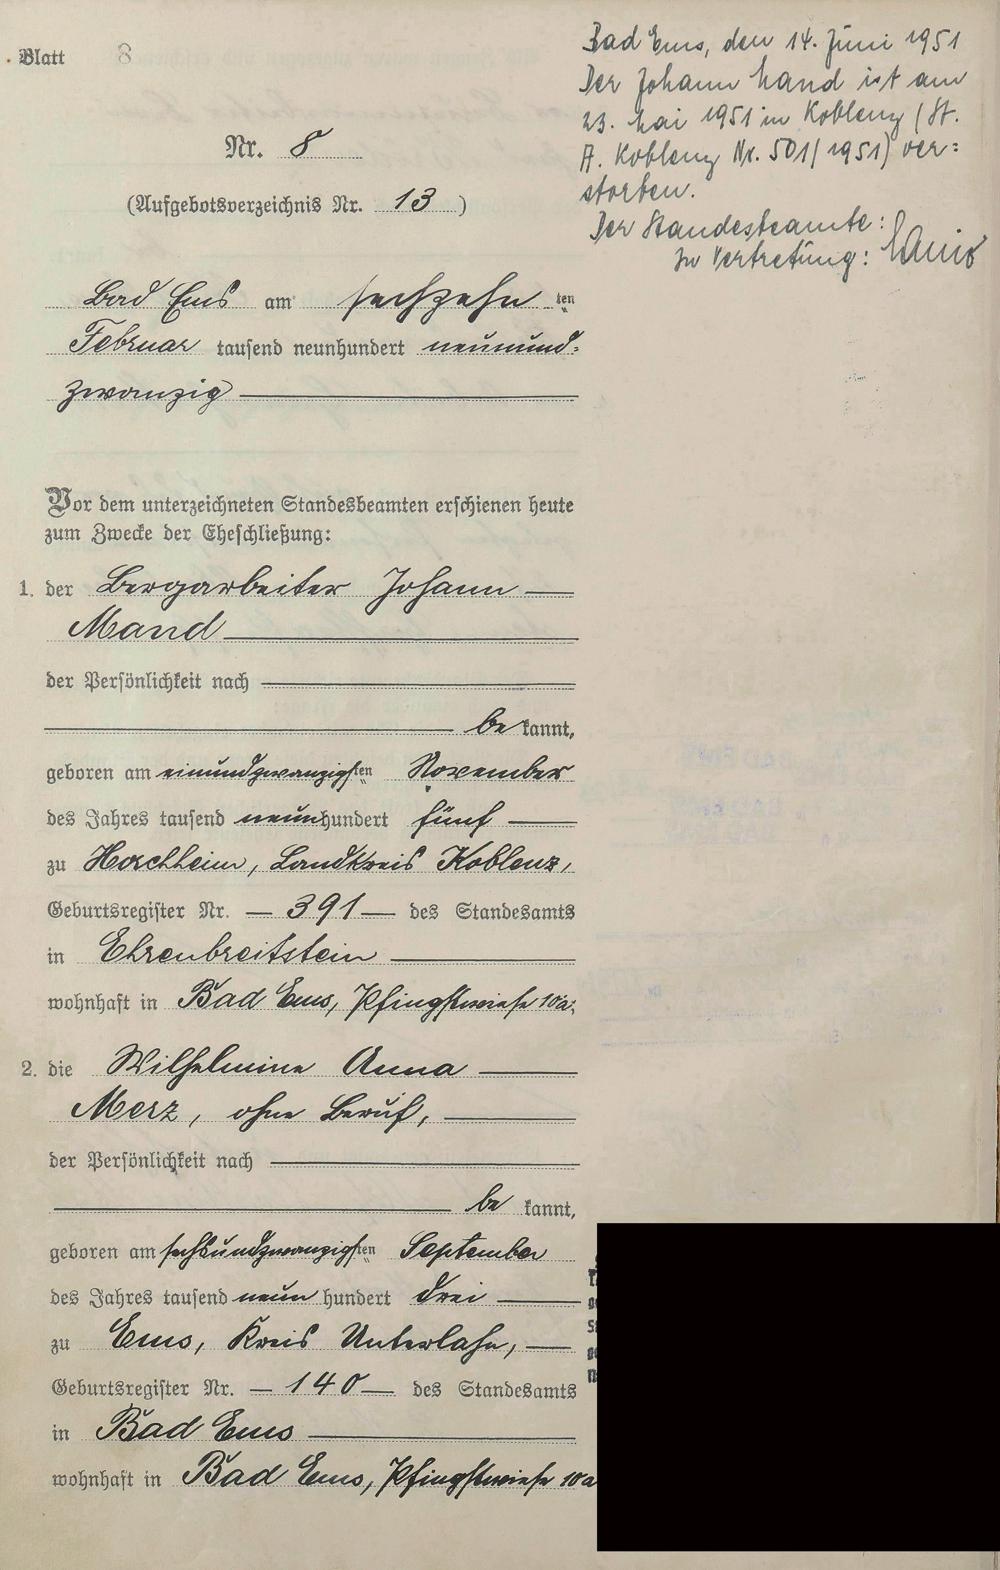 Blatt 8
Bad Ems, den 14. Juni 1951
Der Johann Mand ist am
23. Mai 1951 in Koblenz (St.
A. Koblenz Nr. 501/1951) ver-
storben.
Der Standesbeamte:
In Vertretung:
Nr. 8
(Aufgebotsverzeichnis Nr. 13)
Bad Ems am sechzehnten
Februar tausend neunhundert neunund-
zwanzig
Vor dem unterzeichneten Standesbeamten erschienen heute
zum Zwecke der Eheschließung:
1. der Bergarbeiter Johann
Mand
der Persönlichkeit nach
bekannt,
geboren am einundzwanzigsten November
des Jahres tausend neunhundert fünf
zu Horchheim, Landkreis Koblenz,
Geburtsregister Nr. 391 des Standesamts
in Ehrenbreitstein
wohnhaft in Bad Ems, Pfingstwiese 10a;
2. die Wilhelmine Anna
Merz, ohne Beruf,
der Persönlichkeit nach
bekannt,
geboren am sechsundzwanzigsten September
des Jahres tausend neunhundert drei
zu Ems, Kreis Unterlahn,
Geburtsregister Nr. 140 des Standesamts
in Bad Ems
wohnhaft in Bad Ems, Pfingstwiese 10a